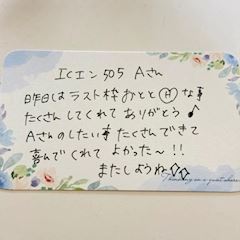 ICエン505 Aさん
昨日はラスト枠おとと Ⓗ な事
たくさんしてくれてありがとう♪
Aさんのしたい事たくさんできて
喜んでくれて よかった~!!
またしようね◇◇